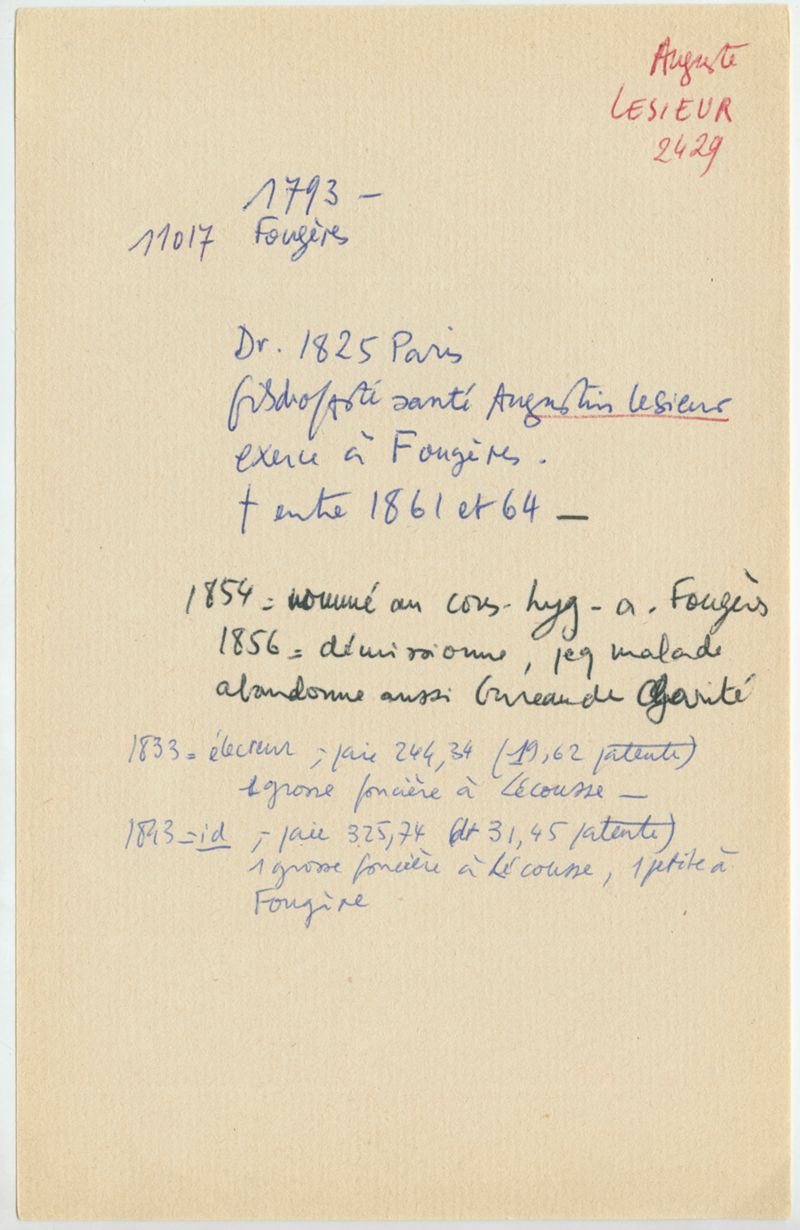 Auguste
LESIEUR
2429
1793 –
11017 Fougères
Dr. 1825 Paris
fils d'off de santé Augustin Lesieur
exerce à Fougères.
† entre 1861 et 64 –
1854 = nommé au cons. hyg – a. Fougères
1856 = démissionne, pcq malade
abandonne aussi bureau de Charité
1833 = électeur, paie 244,34 (19,62 patente)
1 grosse foncière à Lécousse –
1843 = id, paie 325,74 dt 31,45 patente)
1 grosse foncière à Lécousse, 1 petite à
Fougère